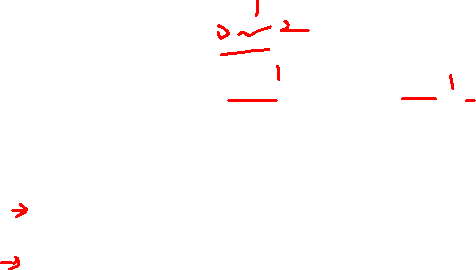 1
0 ~ 2 —
— 1 — 1 —
→
→